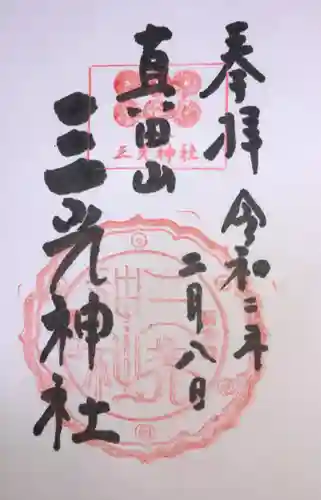 奉拝
令和二年
二月八日
真田山
三光神社
三光神社